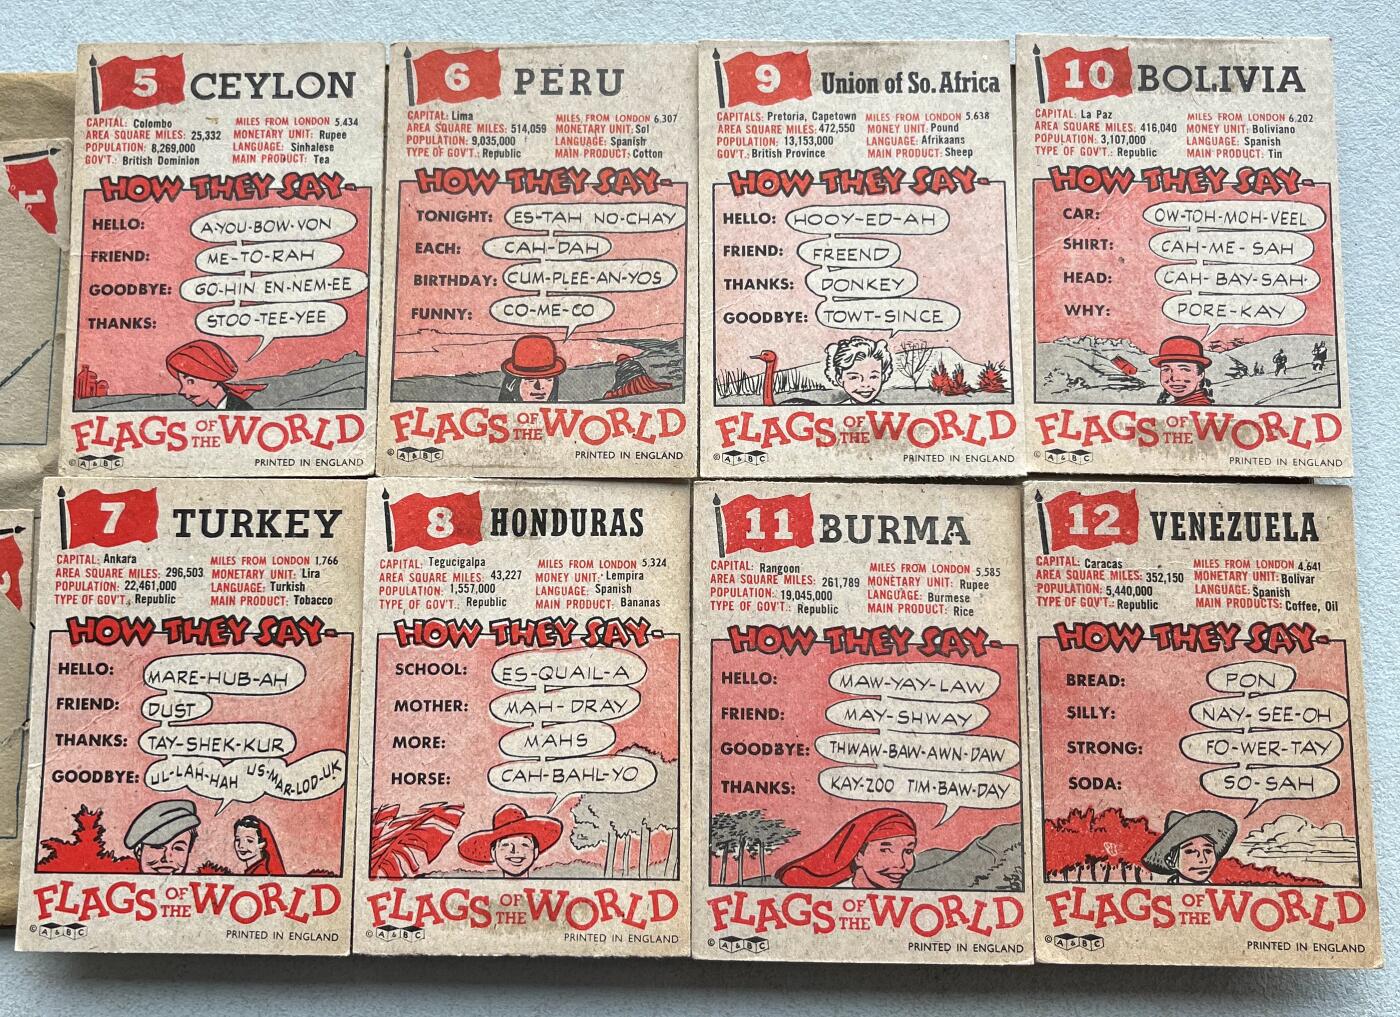 5 CEYLON
CAPITAL: Colombo MILES FROM LONDON 5,434
AREA SQUARE MILES: 25,332 MONETARY UNIT: Rupee
POPULATION: 8,269,000 LANGUAGE: Sinhalese
GOV'T.: British Dominion MAIN PRODUCT: Tea
HOW THEY SAY-
HELLO: A-YOU-BOW-VON
FRIEND: ME-TO-RAH
GOODBYE: GO-HIN EN-NEM-EE
THANKS: STOO-TEE-YEE
FLAGS OF THE WORLD
© A & B C PRINTED IN ENGLAND
6 PERU
CAPITAL: Lima MILES FROM LONDON 6,307
AREA SQUARE MILES: 514,059 MONETARY UNIT: Sol
POPULATION: 9,035,000 LANGUAGE: Spanish
TYPE OF GOV'T: Republic MAIN PRODUCT: Cotton
HOW THEY SAY-
TONIGHT: ES-TAH NO-CHAY
EACH: CAH-DAH
BIRTHDAY: CUM-PLEE-AN-YOS
FUNNY: CO-ME-CO
FLAGS OF THE WORLD
© A & B C PRINTED IN ENGLAND
9 Union of So. Africa
CAPITALS: Pretoria, Capetown MILES FROM LONDON 5,638
AREA SQUARE MILES: 472,550 MONEY UNIT: Pound
POPULATION: 13,153,000 LANGUAGE: Afrikaans
GOV'T.: British Province MAIN PRODUCT: Sheep
HOW THEY SAY-
HELLO: HOOY-ED-AH
FRIEND: FREEND
THANKS: DONKEY
GOODBYE: TOWT-SINCE
FLAGS OF THE WORLD
© A & B C PRINTED IN ENGLAND
10 BOLIVIA
CAPITAL: La Paz MILES FROM LONDON 6,202
AREA SQUARE MILES: 416,040 MONEY UNIT: Boliviano
POPULATION: 3,107,000 LANGUAGE: Spanish
TYPE OF GOV'T.: Republic MAIN PRODUCT: Tin
HOW THEY SAY-
CAR: OW-TOH-MOH-VEEL
SHIRT: CAH-ME-SAH
HEAD: CAH-BAY-SAH-
WHY: PORE-KAY
FLAGS OF THE WORLD
© A & B C PRINTED IN ENGLAND
7 TURKEY
CAPITAL: Ankara MILES FROM LONDON 1,766
AREA SQUARE MILES: 296,503 MONETARY UNIT: Lira
POPULATION: 22,461,000 LANGUAGE: Turkish
TYPE OF GOV'T.: Republic MAIN PRODUCT: Tobacco
HOW THEY SAY-
HELLO: MARE-HUB-AH
FRIEND: DUST
THANKS: TAY-SHEK-KUR
GOODBYE: UL-LAH-HAH US-MAR-LOD-UK
FLAGS OF THE WORLD
© A & B C PRINTED IN ENGLAND
8 HONDURAS
CAPITAL: Tegucigalpa MILES FROM LONDON 5,324
AREA SQUARE MILES: 43,227 MONEY UNIT: Lempira
POPULATION: 1,557,000 LANGUAGE: Spanish
TYPE OF GOV'T.: Republic MAIN PRODUCT: Bananas
HOW THEY SAY-
SCHOOL: ES-QUAIL-A
MOTHER: MAH-DRAY
MORE: MAHS
HORSE: CAH-BAHL-YO
FLAGS OF THE WORLD
© A & B C PRINTED IN ENGLAND
11 BURMA
CAPITAL: Rangoon MILES FROM LONDON 5,585
AREA SQUARE MILES: 261,789 MONETARY UNIT: Rupee
POPULATION: 19,045,000 LANGUAGE: Burmese
TYPE OF GOV'T.: Republic MAIN PRODUCT: Rice
HOW THEY SAY-
HELLO: MAW-YAY-LAW
FRIEND: MAY-SHWAY
GOODBYE: THWAW-BAW-AWN-DAW
THANKS: KAY-ZOO TIM-BAW-DAY
FLAGS OF THE WORLD
© A & B C PRINTED IN ENGLAND
12 VENEZUELA
CAPITAL: Caracas MILES FROM LONDON 4,641
AREA SQUARE MILES: 352,150 MONETARY UNIT: Bolivar
POPULATION: 5,440,000 LANGUAGE: Spanish
TYPE OF GOV'T.: Republic MAIN PRODUCTS: Coffee, Oil
HOW THEY SAY-
BREAD: PON
SILLY: NAY-SEE-OH
STRONG: FO-WER-TAY
SODA: SO-SAH
FLAGS OF THE WORLD
© A & B C PRINTED IN ENGLAND